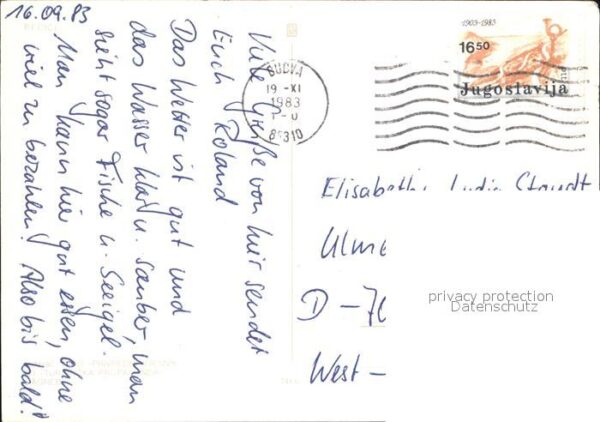 16.09.83
Viele Grüße von hier sendet
Euch Roland
Das Wetter ist gut und
das Wasser klar u. sauber, man
sieht sogar Fische u. Seeigel.
Man kann hier gut essen, ohne
viel zu bezahlen! Also bis bald!
1903-1983
16.50
Jugoslavija
BUDVA
19-XI
1983
85310
Elisabeth
Ulme
D-70
West-
privacy protection
Datenschutz